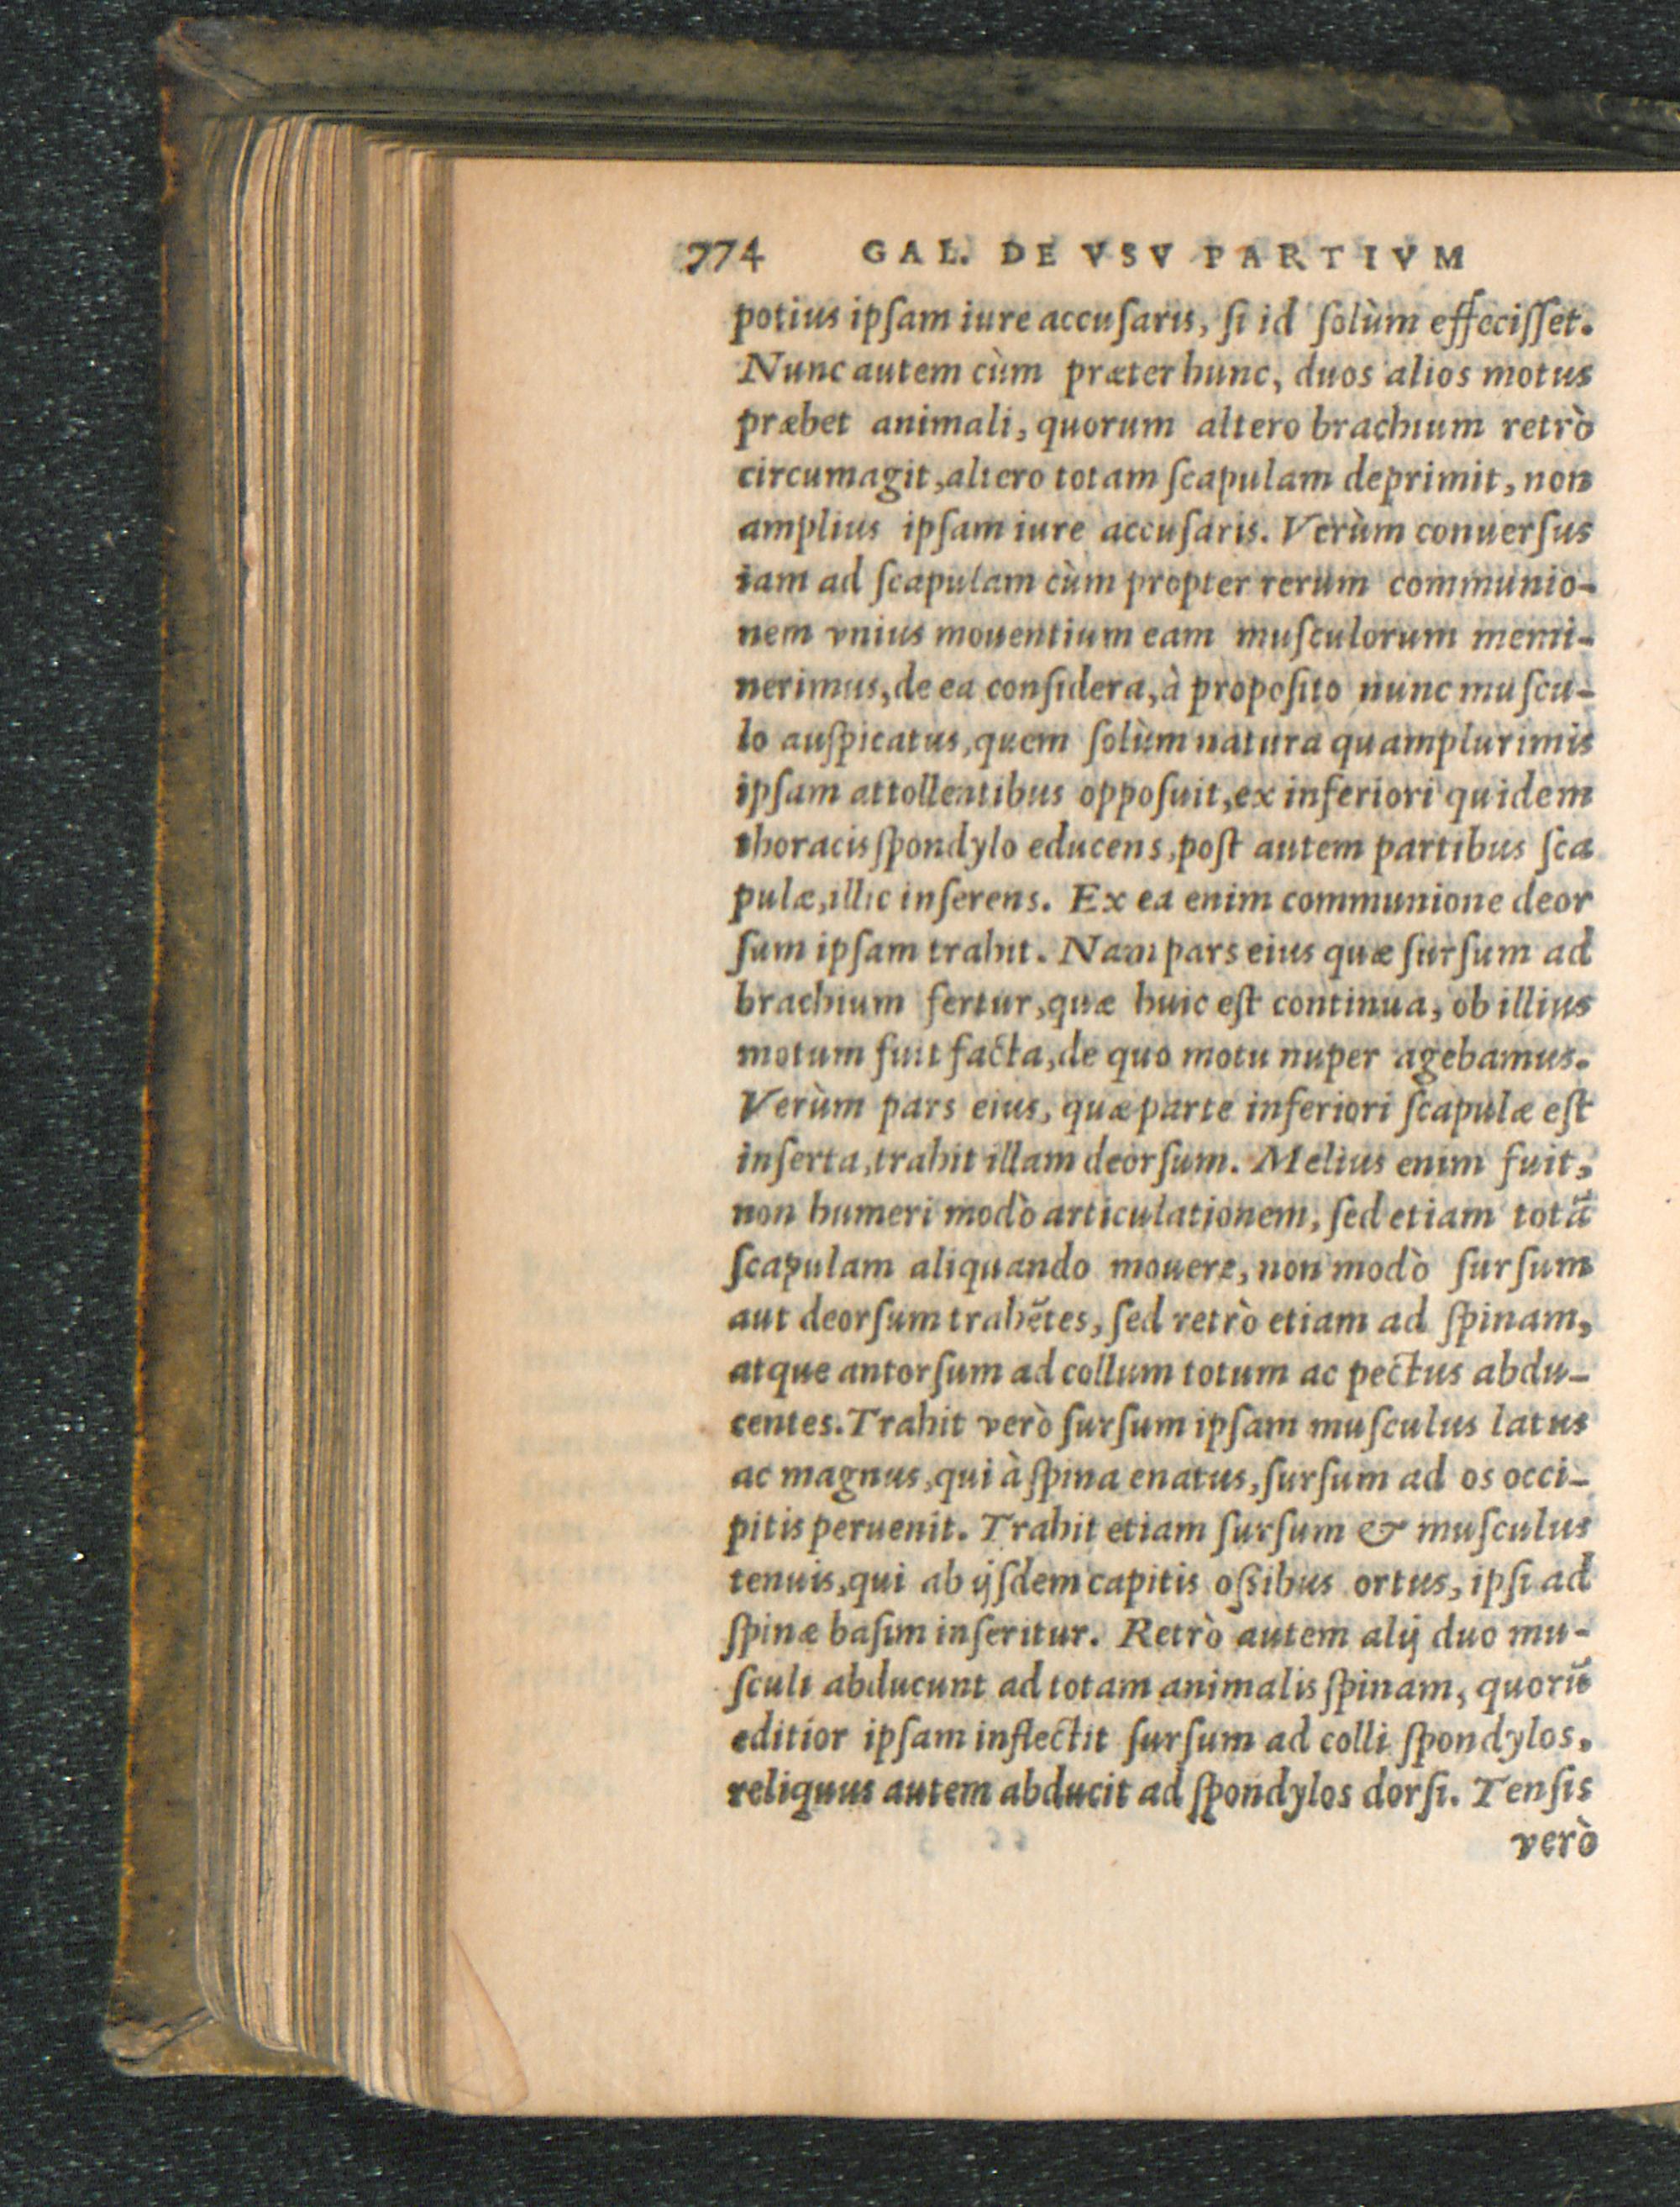 774 GAL. DE VSV PARTIVM
potius ipſam iure accuſaris, ſi id ſolùm effeciſſet.
Nunc autem cùm præter hunc, duos alios motus
præbet animali, quorum altero brachium retrò
circumagit, altero totam ſcapulam deprimit, non
amplius ipſam iure accuſaris. Verùm conuerſus
iam ad ſcapulam cùm propter rerum communio-
nem vnius mouentium eam muſculorum memi-
nerimus, de ea conſidera, à propoſito nunc muſcu-
lo auſpicatus, quem ſolùm natura quamplurimis
ipſam attollentibus oppoſuit, ex inferiori quidem
thoracis ſpondylo educens, poſt autem partibus ſca
pulæ, illic inſerens. Ex ea enim communione deor
ſum ipſam trahit. Nam pars eius quæ ſurſum ad
brachium fertur, quæ huic eſt continua, ob illius
motum fuit facta, de quo motu nuper agebamus.
Verùm pars eius, quæ parte inferiori ſcapulæ eſt
inſerta, trahit illam deorſum. Melius enim fuit,
non humeri modò articulationem, ſed etiam totã
ſcapulam aliquando mouere, non modò ſurſum
aut deorſum trahẽtes, ſed retrò etiam ad ſpinam,
atque antorſum ad collum totum ac pectus abdu-
centes. Trahit verò ſurſum ipſam muſculus latus
ac magnus, qui à ſpina enatus, ſurſum ad os occi-
pitis peruenit. Trahit etiam ſurſum & muſculus
tenuis, qui ab ijſdem capitis oſſibus ortus, ipſi ad
ſpinæ baſim inſeritur. Retrò autem alij duo mu-
ſculi abducunt ad totam animalis ſpinam, quorũ
editior ipſam inflectit ſurſum ad colli ſpondylos,
reliquus autem abducit ad ſpondylos dorſi. Tenſis
verò